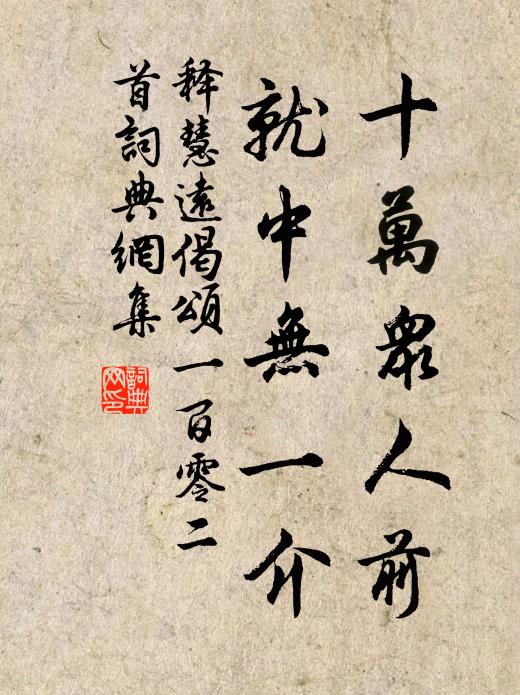 十萬眾人前
就中無一介
释慧遠偈頌一百零二
首詞典網集
詞典
网印